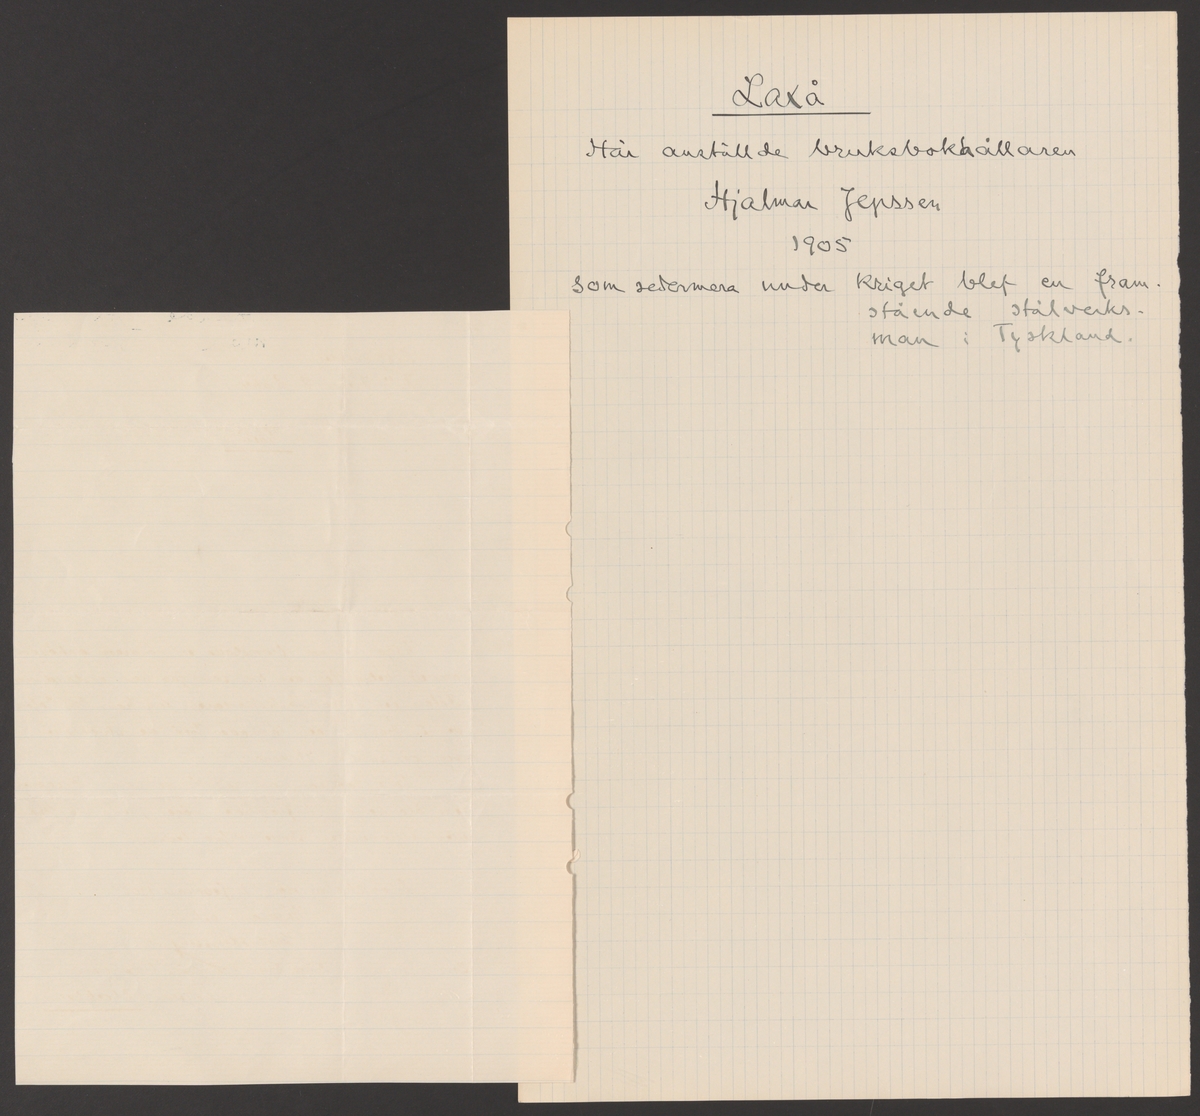 Laxå
Här anställde bruksbokhållaren
Hjalmar Jepssen
1905
som sedermera under kriget blef en fram-
stående stålverks-
man i Tyskland.